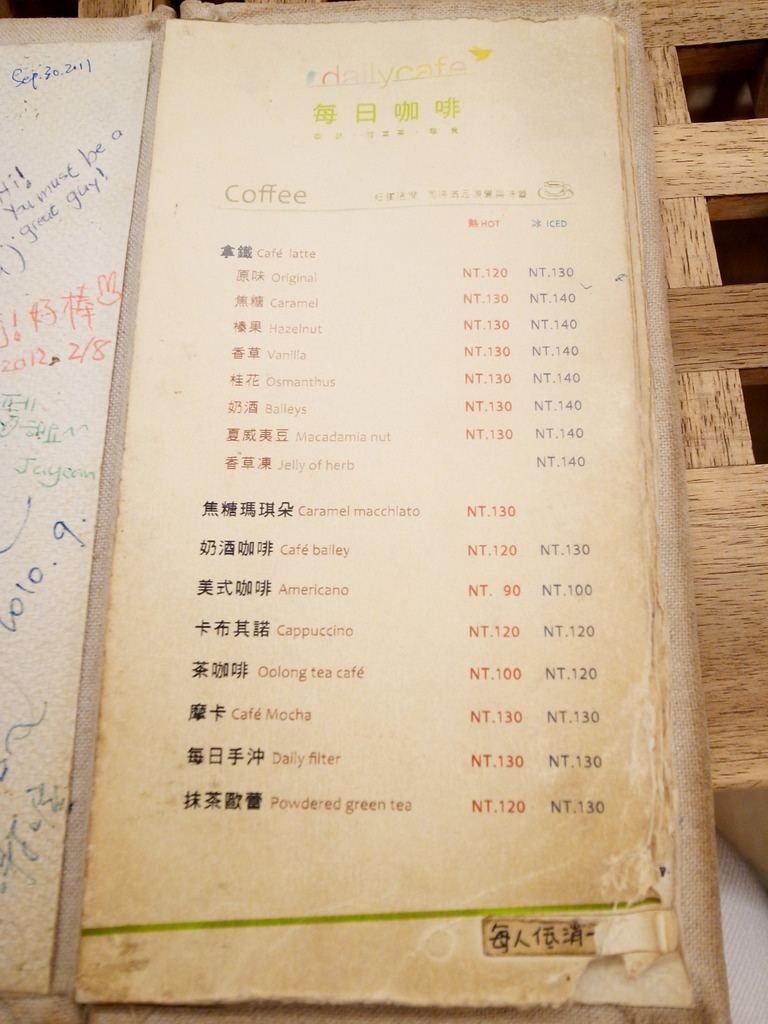 Sep.30.2011
Hi!
You must be a
great guy!
好棒
2012. 2/8
Juyean
2010. 9.
dailycafe
每日咖啡
Coffee
熱 HOT 冰 ICED
拿鐵 Café latte
原味 Original NT.120 NT.130
焦糖 Caramel NT.130 NT.140
榛果 Hazelnut NT.130 NT.140
香草 Vanilla NT.130 NT.140
桂花 Osmanthus NT.130 NT.140
奶酒 Baileys NT.130 NT.140
夏威夷豆 Macadamia nut NT.130 NT.140
香草凍 Jelly of herb NT.140
焦糖瑪琪朵 Caramel macchiato NT.130
奶酒咖啡 Café bailey NT.120 NT.130
美式咖啡 Americano NT. 90 NT.100
卡布其諾 Cappuccino NT.120 NT.120
茶咖啡 Oolong tea café NT.100 NT.120
摩卡 Café Mocha NT.130 NT.130
每日手沖 Daily filter NT.130 NT.130
抹茶歐蕾 Powdered green tea NT.120 NT.130
每人低消一